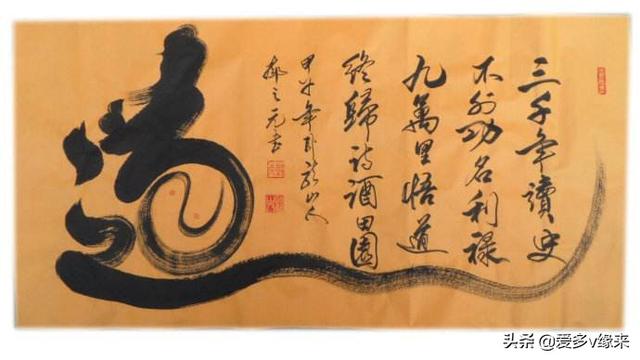 三千年讀史
不外功名利祿
九萬里悟道
終歸詩酒田園
甲午年卧龍山人
道
头条 @爱多v缘来